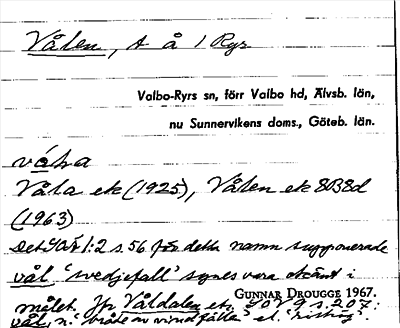 Vålen, t å 1 Ryr
Valbo-Ryrs sn, förr Valbo hd, Älvsb. län,
nu Sunnervikens doms., Göteb. län.
våḷa
Våla ek (1925), Vålen ek 8B8d
(1963)
Det i OÄ 1:2 s. 56 för detta namn supponerade
vål 'svedjefall' synes vara okänt i
målet. Jfr Våldalen etc. GOV 9 s. 207:
GUNNAR DROUGGE 1967.
vål, n. 'bråte av vindfällen' el.